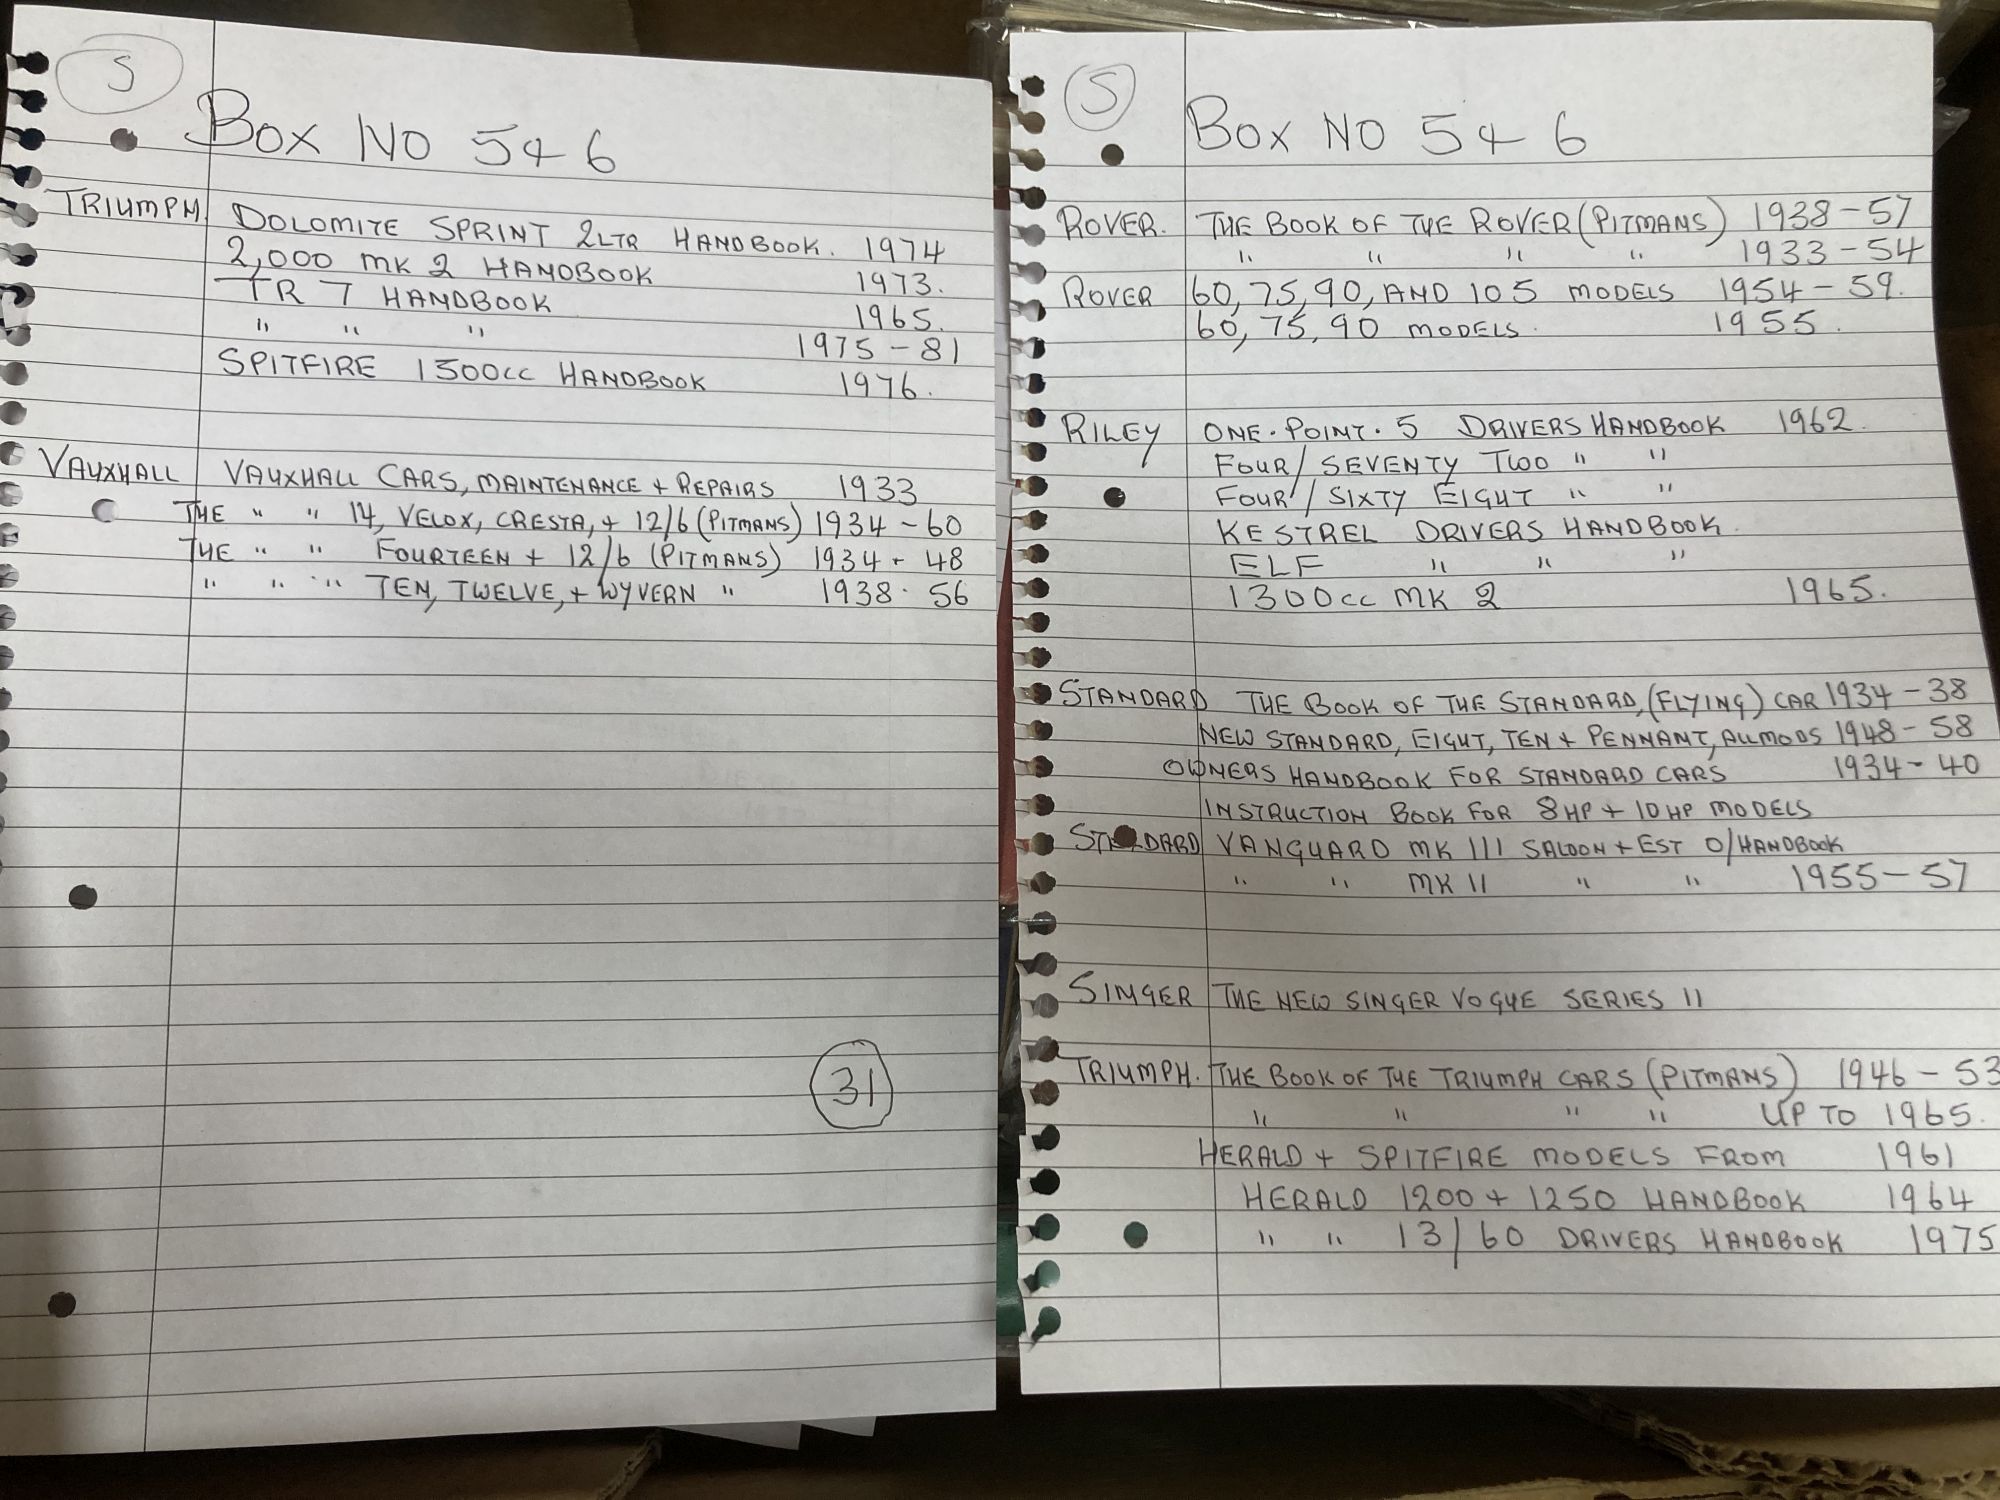 5
Box NO 5 + 6
TRIUMPH DOLOMITE SPRINT 2LTR HANDBOOK. 1974
2,000 MK 2 HANDBOOK 1973.
TR 7 HANDBOOK 1965.
" " " 1975 - 81
SPITFIRE 1500cc HANDBOOK 1976.
VAUXHALL VAUXHALL CARS, MAINTENANCE + REPAIRS 1933
THE " " 14, VELOX, CRESTA, + 12/6 (PITMANS) 1934 - 60
THE " " FOURTEEN + 12/6 (PITMANS) 1934 - 48
" " " TEN, TWELVE, + WYVERN " 1938 - 56
31
5
Box NO 5 + 6
ROVER. THE BOOK OF THE ROVER (PITMANS) 1938 - 57
" " " " 1933 - 54
ROVER 60, 75, 90, AND 105 MODELS 1954 - 59.
60, 75, 90 MODELS. 1955.
RILEY ONE. POINT. 5 DRIVERS HANDBOOK 1962.
FOUR / SEVENTY TWO " "
FOUR / SIXTY EIGHT " "
KESTREL DRIVERS HANDBOOK.
ELF " " "
1300cc MK 2 1965.
STANDARD THE BOOK OF THE STANDARD, (FLYING) CAR 1934 - 38
NEW STANDARD, EIGHT, TEN + PENNANT, ALL MODS 1948 - 58
OWNERS HANDBOOK FOR STANDARD CARS 1934 - 40
INSTRUCTION BOOK FOR 8 HP + 10 HP MODELS
STANDARD VANGUARD MK III SALOON + EST O/HANDBOOK
" " MK II " " 1955 - 57
SINGER THE NEW SINGER VOGUE SERIES II
TRIUMPH. THE BOOK OF THE TRIUMPH CARS (PITMANS) 1946 - 53
" " " " UP TO 1965.
HERALD + SPITFIRE MODELS FROM 1961
HERALD 1200 + 1250 HANDBOOK 1964
" " 13/60 DRIVERS HANDBOOK 1975